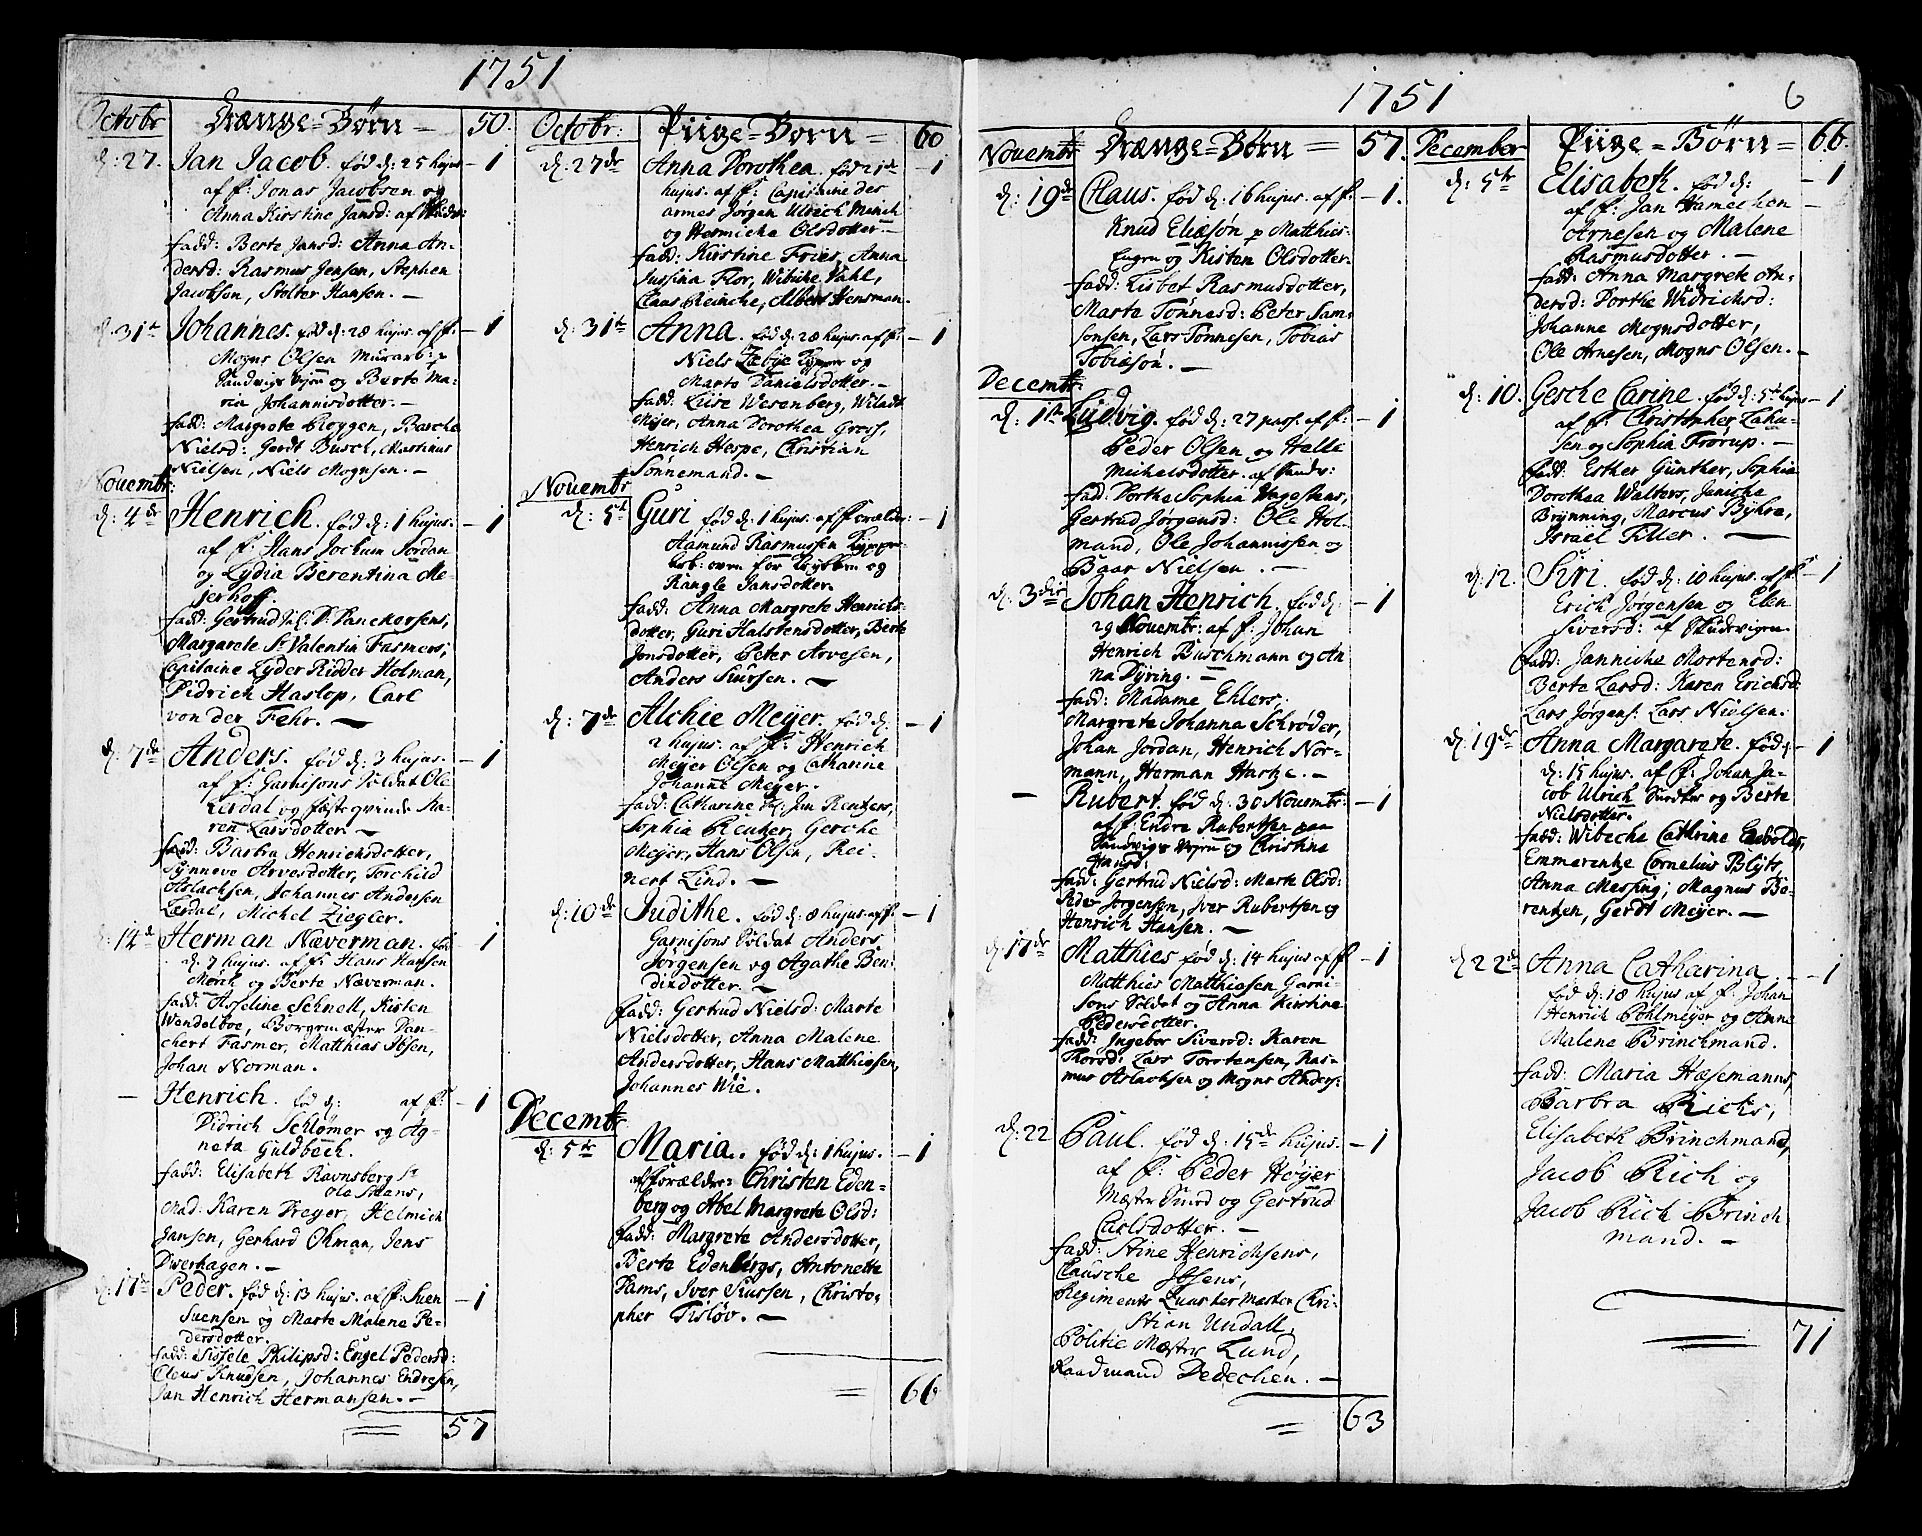 1751
Octobr
Drænge-Børn
50.
d: 27.
Jan Jacob. fød d: 25 hujus
1
af f: Jonas Jacobsen og
Anna Kirstine Jansd:
fadd: Berte Jansd: Anna An-
dersd: Rasmus Jensen, Stephen
Jacobsen, Stolter Hansen.
d: 31te
Johannes. fød d: 28 hujus. af f:
1
Mogns Olsen Murarb:
Sandvigs Vejen og Berte Ma-
ria Johannisdotter.
fadd: Margrete Roggen, Barche
Nielsd: Gerdt Busch, Martinus
Nielsen, Niels Mognsen.
Novembr:
d: 4de
Henrich. fød d: 1 hujus.
1
af f: Hans Jochum Jordan
og Lydia Berentina Me-
jerhoff.
fadd: Gertrud Sl. D: Danckersens,
Margarete St Valentin Fasmers,
Capitaine Lyder Ridder Holman,
Didrich Haslop, Carl
von der Fehr.
d: 7de
Anders. fød d: 3 hujus.
1
af f: Garnisons Soldat Ole
Lerdal og fæsteqvinde Ka-
ren Larsdotter
fadd: Barbra Henrichsdotter,
Synneve Arvesdotter, Torchild
Aslachsen, Johannes Andersen
Lærdal, Michel Ziegler.
d: 14de
Herman Næverman. fød
1
d. 7 hujus. af f: Hans Hansen
Mørch og Berte Næverman.
fadd: Asseline Schnell, Kisten
Wendelboe, Borgemæster Dan-
chert Fasmer, Matthias Ibsen,
Johan Norman.
Henrich. fød d: af f:
1
Didrich Schlømer og Ag-
neta Guldbech.
fadd: Elisabeth Ravnsberg St
Ole Smans,
Mad: Karen Freyer, Helmich
Jansen, Gerhard Ohman, Jens
Dwerhagen.
d: 17de
Peder. fød d: 13 hujus. af f: Suen
1
Suensen og Marte Malene Pe-
dersdotter.
fadd: Sissele Philipsd: Engel Pedersd:
Claus Knudsen, Johannes Endresen,
Jan Henrich Hermansen.
57
Octobr:
Piige-Børn
60
d: 27de
Anna Dorothea. fød 21de
1
hujus. af f: Capitaine des
armes Jørgen Ulrich Minich
og Hermiche Olsdotter
fadd: Kirstine Fries, Anna
Jussina Flor, Wibiche Vahl,
Claas Reinche, Albert Hensman.
d: 31te
Anna. fød d: 28 hujus. af f:
1
Niels Zæbye og
Marte Danielsdotter.
fadd: Luise Wesenberg, Wiladt
Mejer, Anna Dorothea Gross,
Henrich Hespe, Christian
Sonnemand.
Novembr
d: 5te
Guri fød d: 1 hujus. af Forælder:
1
Aamund Rasmussen
og
Rangle Jansdotter.
fadd: Anna Margrete Henrichs-
dotter, Guri Halstensdotter, Berte
Jonsdotter, Peter Arvesen,
Anders Siursen.
d: 7de
Alchie Mejer. fød d.
1
2 hujus. af f: Henrich
Mejer Olsen og Catharine
Johanne Mejer.
fadd: Catharine Jan Rentzers,
Sophia Reuter, Gerche
Mejer, Hans Olsen, Rei-
nert Lind.
d: 10de
Judithe. fød d: 8 hujus. af f:
1
Garnisons Soldat Anders
Jørgensen og Agathe Ben-
dixdotter.
fadd: Gertrud Nielsd: Marte
Nielsdotter, Anna Malene
Andersdotter, Hans Matthiasen,
Johannes Wie.
Decembr
d: 5te
Maria. fød d: 1 hujus.
1
af forælder: Christen Eden-
berg og Abel Margrete Olsd:
fadd: Margrete Andersdotter,
Berte Edenbergs, Antonette
Dams, Iver Siursen, Christo-
pher Tisløv.
66
1751
6
Novembr
Drænge-Børn
57.
d: 19de
Claus. fød d: 16 hujus. af f:
1.
Knud Eliæsøn p Matthies-
Eugen og Kisten Olsdotter
fadd: Lisbet Rasmusdotter,
Marte Tønnesd: Peter Sam-
sonsen, Lars Tonnesen, Tobias
Tobiæsøn.
Decembr:
d: 1te
Ludvig. fød d: 27 pass. af f:
1
Peder Olsen og Helle
Michelsdotter. af Sandv:
fad: Dorthe Sophia Hagestens,
Gertrud Jørgensd: Ole Hol-
mand, Ole Johannissen og
Baar Nielsen.
d: 3die
Johan Henrich. fød d:
1
29 Novembr: af f: Johan
Henrich Buschmann og An-
na Dyring.
fadd: Madame Ehlers,
Margrete Johanna Schrøder,
Johan Jordan, Henrich Nor-
mann, Herman Hartze.
Rubert. fød d: 30 Novembr:
1
af f: Endre Rubertsen paa
Sandvigs Vejen og Christine
Knudsd:
fadd: Gertrud Nielsd: Marte Olsd:
Peder Jorgensen, Iver Rubertsen og
Henrich Hansen.
d: 17de
Matthies fød d: 14 hujus af f
1
Matthies Matthiesen Garni-
sons Soldat og Anna Kirstine
Pedersdotter.
fadd: Ingebor Siversd: Karen
Thorsd: Lars Torstensen, Ras-
mus Aslachsen og Mogns Anders:
d: 22
Paul. fød d: 15de hujus.
1
af f: Peder Høyer
Mæster Smed og Gertrud
Carlsdotter.
fadd: Stine Henrichsens,
Clausche Ibsens,
Regiments Quarter Mæster Chri-
stian Undall,
Politie Mæster Lund,
Raadmand Dedechen.
63
December
Piige-Børn
66.
d: 5te
Elisabeth. fød d:
1
af f: Jan Hamechen
Arnesen og Malene
Rasmusdotter.
fadd: Anna Margrete An-
dersd: Dorthe Widrichsd:
Johanne Mognsdotter,
Ole Arnesen, Mogns Olsen.
d: 10.
Gesche Carine. fød d: 5te hujus
1
af f: Christopher Zahu-
sen og Sophia Frorup.
fadd: Esther Gunther, Sophia
Dorothea Walters, Janiche
Brynning, Marcus Byhre,
Israel Filler.
d: 12.
Siri. fød d: 10 hujus. af f:
1
Erich Jørgensen og Elen
Siversd: af Skudevigen
fadd: Janniche Mortensd:
Berte Larsd: Karen Erichsd
Lars Jørgens: Lars Nielsen.
d: 19de
Anna Margarete. fød
1
d: 15 hujus. af f: Johan Ja-
cob Ulrich Snedker og Berte
Nielsdotter.
fadd: Wibeche Cathrine
Emmerentze Cornelius Blyts,
Anna Messing, Magnus Be-
rentzen, Gerdt Mejer.
d 22de
Anna Catharina
1
fød d: 18 hujus af f: Johan
Henrich Pohlmejer og Anne
Malene Brinchmand.
fadd: Maria Hæsemanns,
Barbra Richs,
Elisabeth Brinchmand,
Jacob Rich og
Jacob Rich Brinch
mand.
71